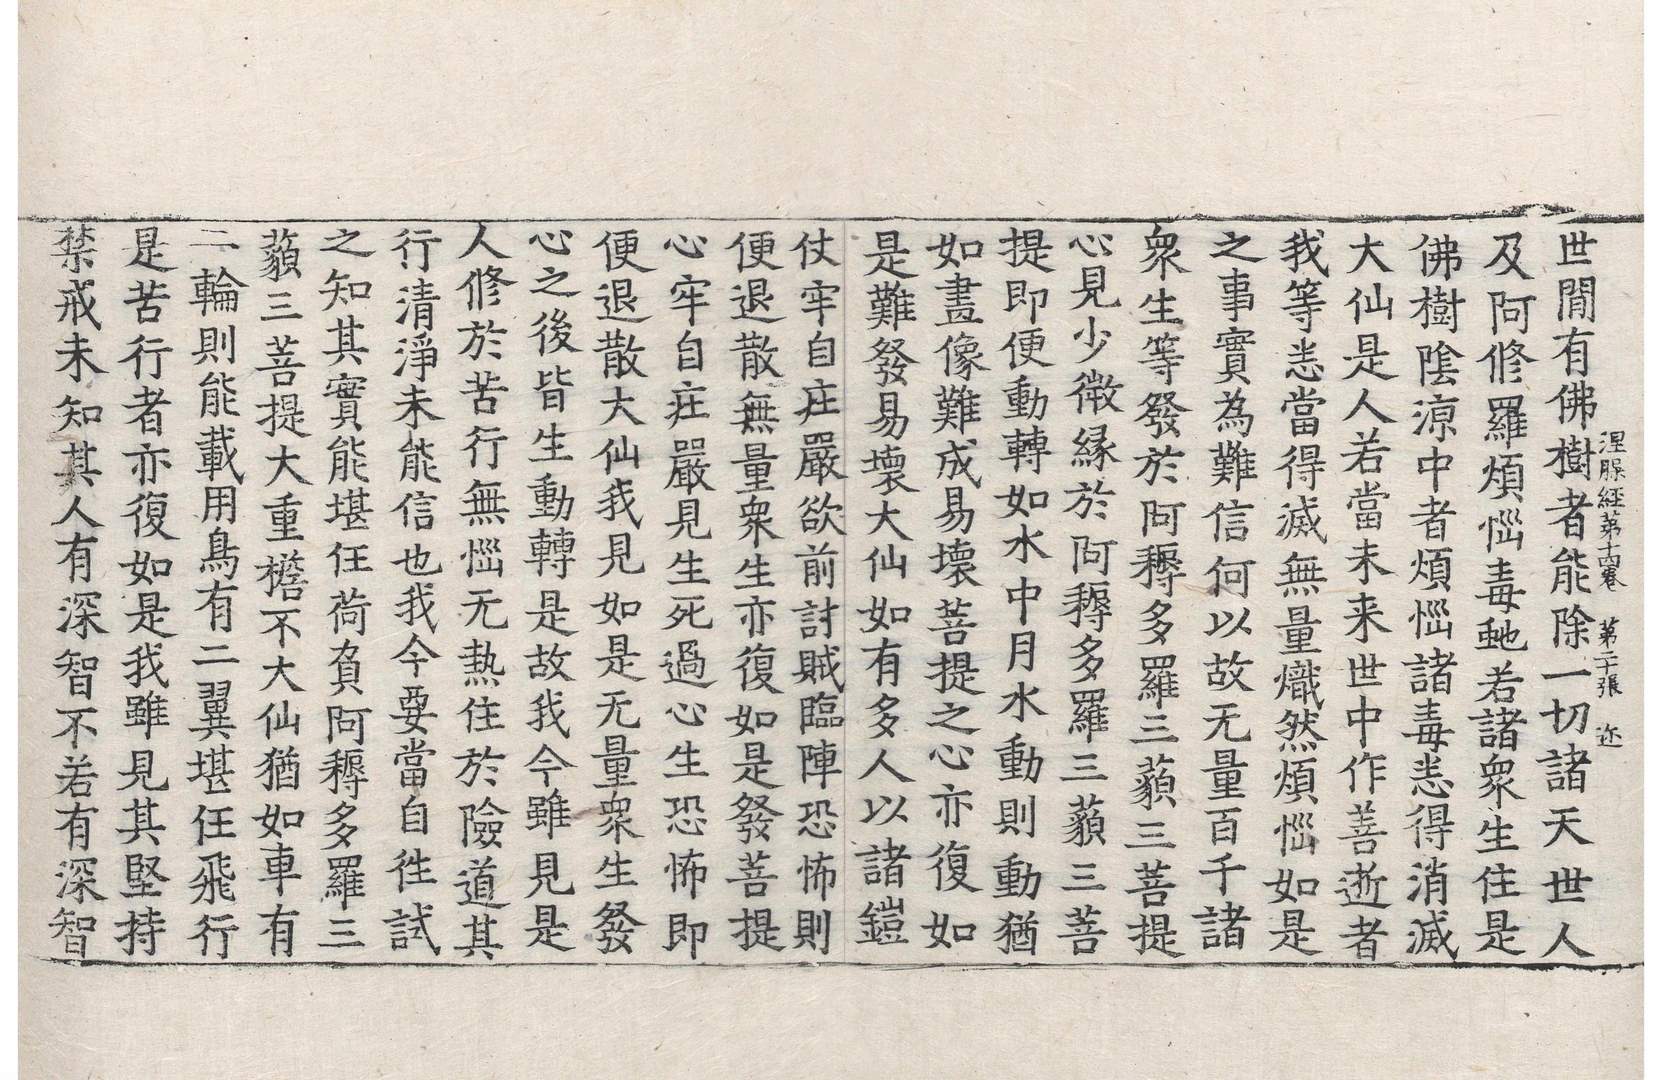 世閒有佛樹者能除一切諸天世人
涅槃經第十四卷　第二十張　迩
及阿修羅煩惱毒虵若諸衆生住是
佛樹陰凉中者煩惱諸毒悉得消滅
大仙是人若當未来世中作善逝者
我等悉當得滅無量熾然煩惱如是
之事實為難信何以故无量百千諸
衆生等發於阿耨多羅三藐三菩提
心見少微縁於阿耨多羅三藐三菩
提即便動轉如水中月水動則動猶
如畫像難成易壞菩提之心亦復如
是難發易壞大仙如有多人以諸鎧
仗牢自庄嚴欲前討賊臨陣恐怖則
便退散無量衆生亦復如是發菩提
心牢自庄嚴見生死過心生恐怖即
便退散大仙我見如是无量衆生發
心之後皆生動轉是故我今雖見是
人修於苦行無惱无熱住於險道其
行清淨未能信也我今要當自徃試
之知其實能堪任荷負阿耨多羅三
藐三菩提大重檐不大仙猶如車有
二輪則能載用鳥有二翼堪任飛行
是苦行者亦復如是我雖見其堅持
禁戒未知其人有深智不若有深智